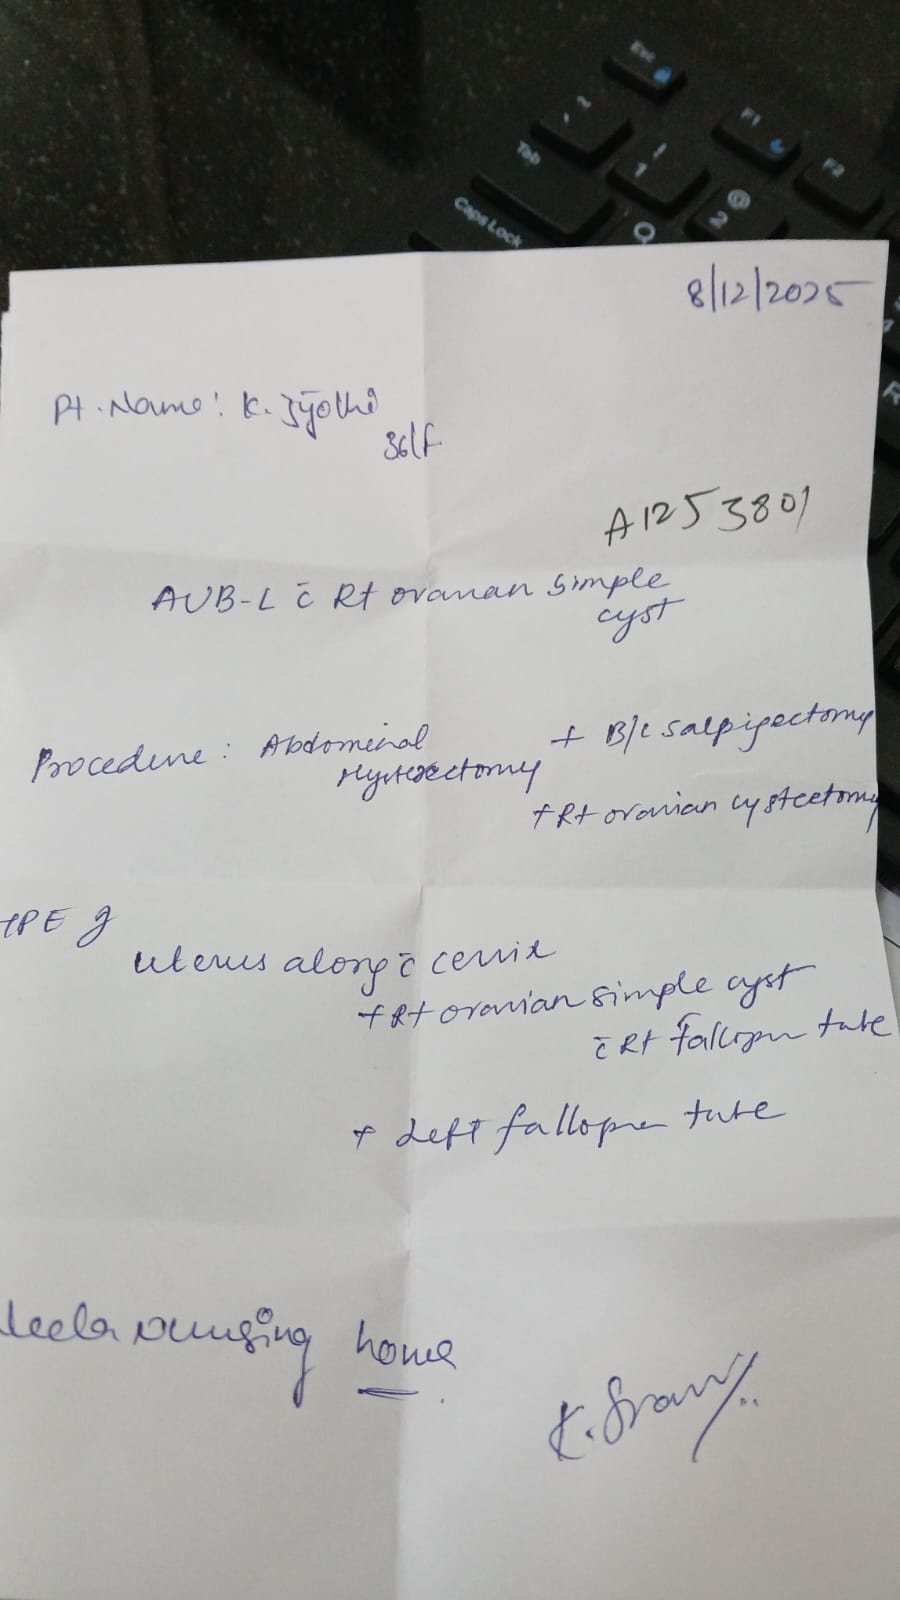 Esc
~
F1
F2
Tab
!
1
@
2
Caps Lock
Q
4
R
8/12/2025
Pt. Name: K. Jyothi
36/F
A1253801
AUB-L c̄ Rt ovarian simple
cyst
Procedure: Abdominal + B/L salpigectomy
Hysterectomy
+ Rt ovarian cystectomy
HPE of
uterus along c̄ cervix
+ Rt ovarian simple cyst
c̄ Rt fallopian tube
+ Left fallopian tube
Leela nursing home
K.